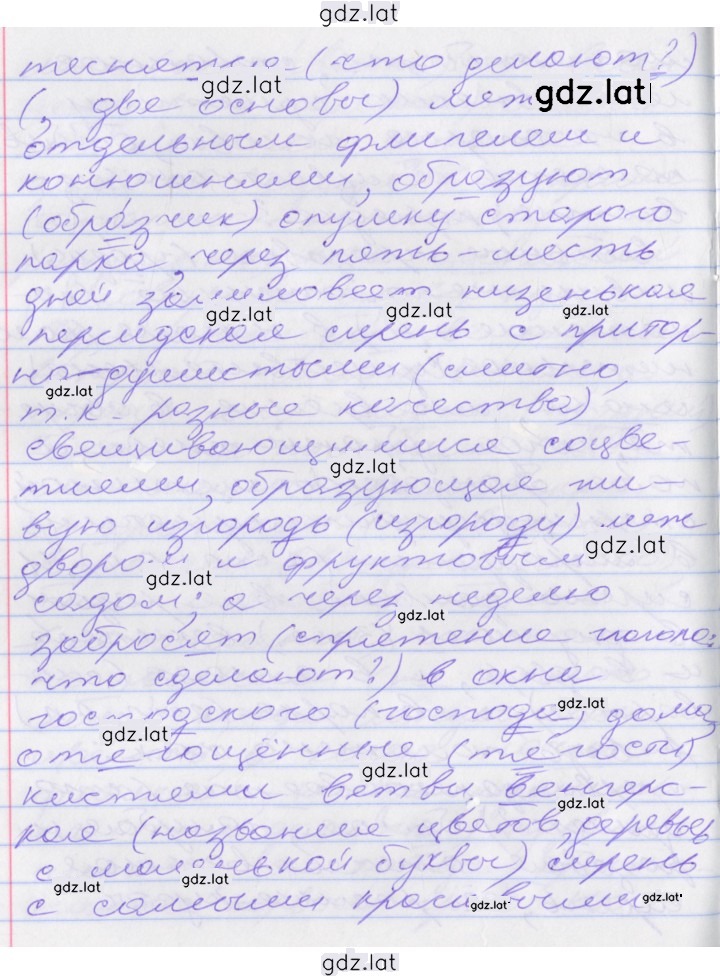 gdz.lat
теснятся (что делают?)
gdz.lat
gdz.lat
(, две основы) меж
отдельным флигелем и
конюшнями, образуют
(образчик) опушку старого
парка, через пять-шесть
дней залиловеет низенькая
gdz.lat
gdz.lat
gdz.lat
персидская сирень с притор-
но-душистыми (слитно,
gdz.lat
т.к. разные качества)
свешивающимися соцве-
gdz.lat
тиями, образующая жи-
вую изгородь (изгороди) меж
gdz.lat
двором и фруктовым
gdz.lat
садом; а через неделю
gdz.lat
забросят (спряжение глагола:
что сделают?) в окна
gdz.lat
господского (господа) дома
gdz.lat
отягощённые (тягосты)
gdz.lat
кистями ветви венгерс-
gdz.lat
кая (название цветов, деревьев
с маленькой буквы) сирень
gdz.lat
gdz.lat
с самыми красивыми
gdz.lat
gdz.lat
gdz.lat